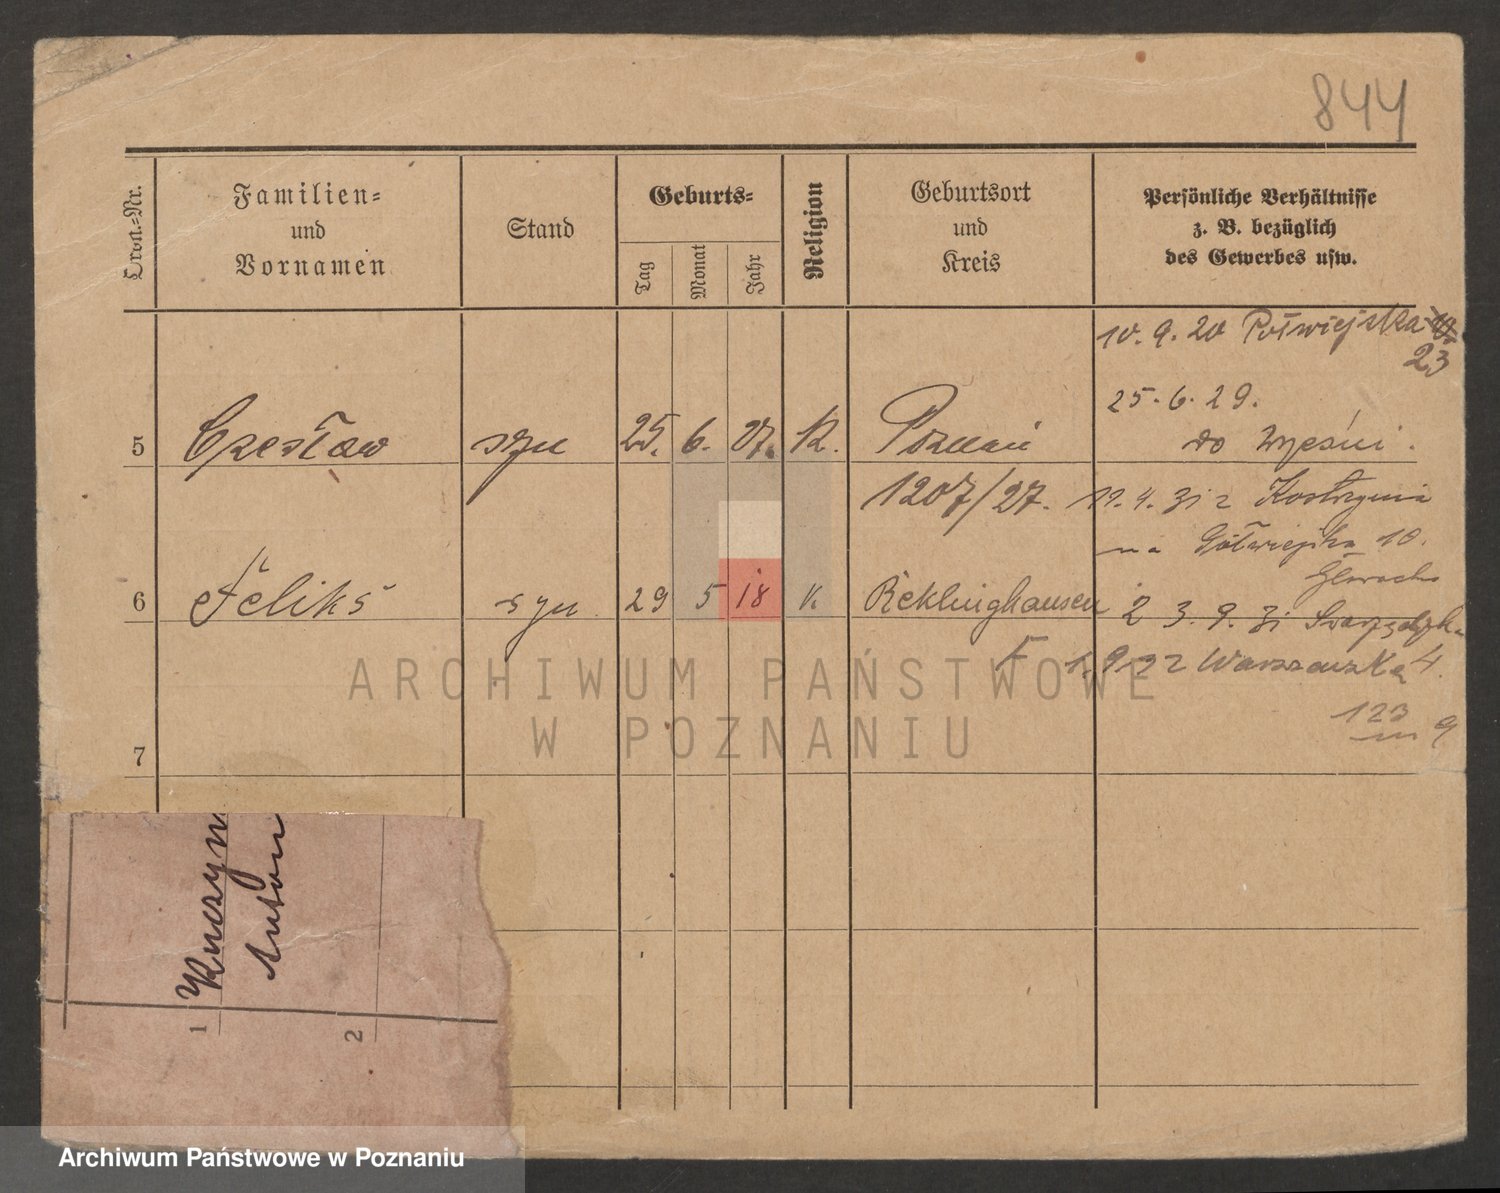 844
Familien=
und
Vornamen
Stand
Geburts=
Tag
Monat
Jahr
Religion
Geburtsort
und
Kreis
Persönliche Verhältnisse
z. B. bezüglich
des Gewerbes usw.
10. 9. 20 Półwiejska
23
25. 6. 29.
do Wrześni.
5 Czesław syn 25. 6. 27. K. Poznań
1207/27. 19. 4. 31 z Kostrzynia
na Półwiejska 10.
6 Feliks syn 29 5 18 K. Recklinghausen
3. 9. 31
Warszawska 4.
123
7
ARCHIWUM PAŃSTWOWE
W POZNANIU
1
Antoni
2
Archiwum Państwowe w Poznaniu